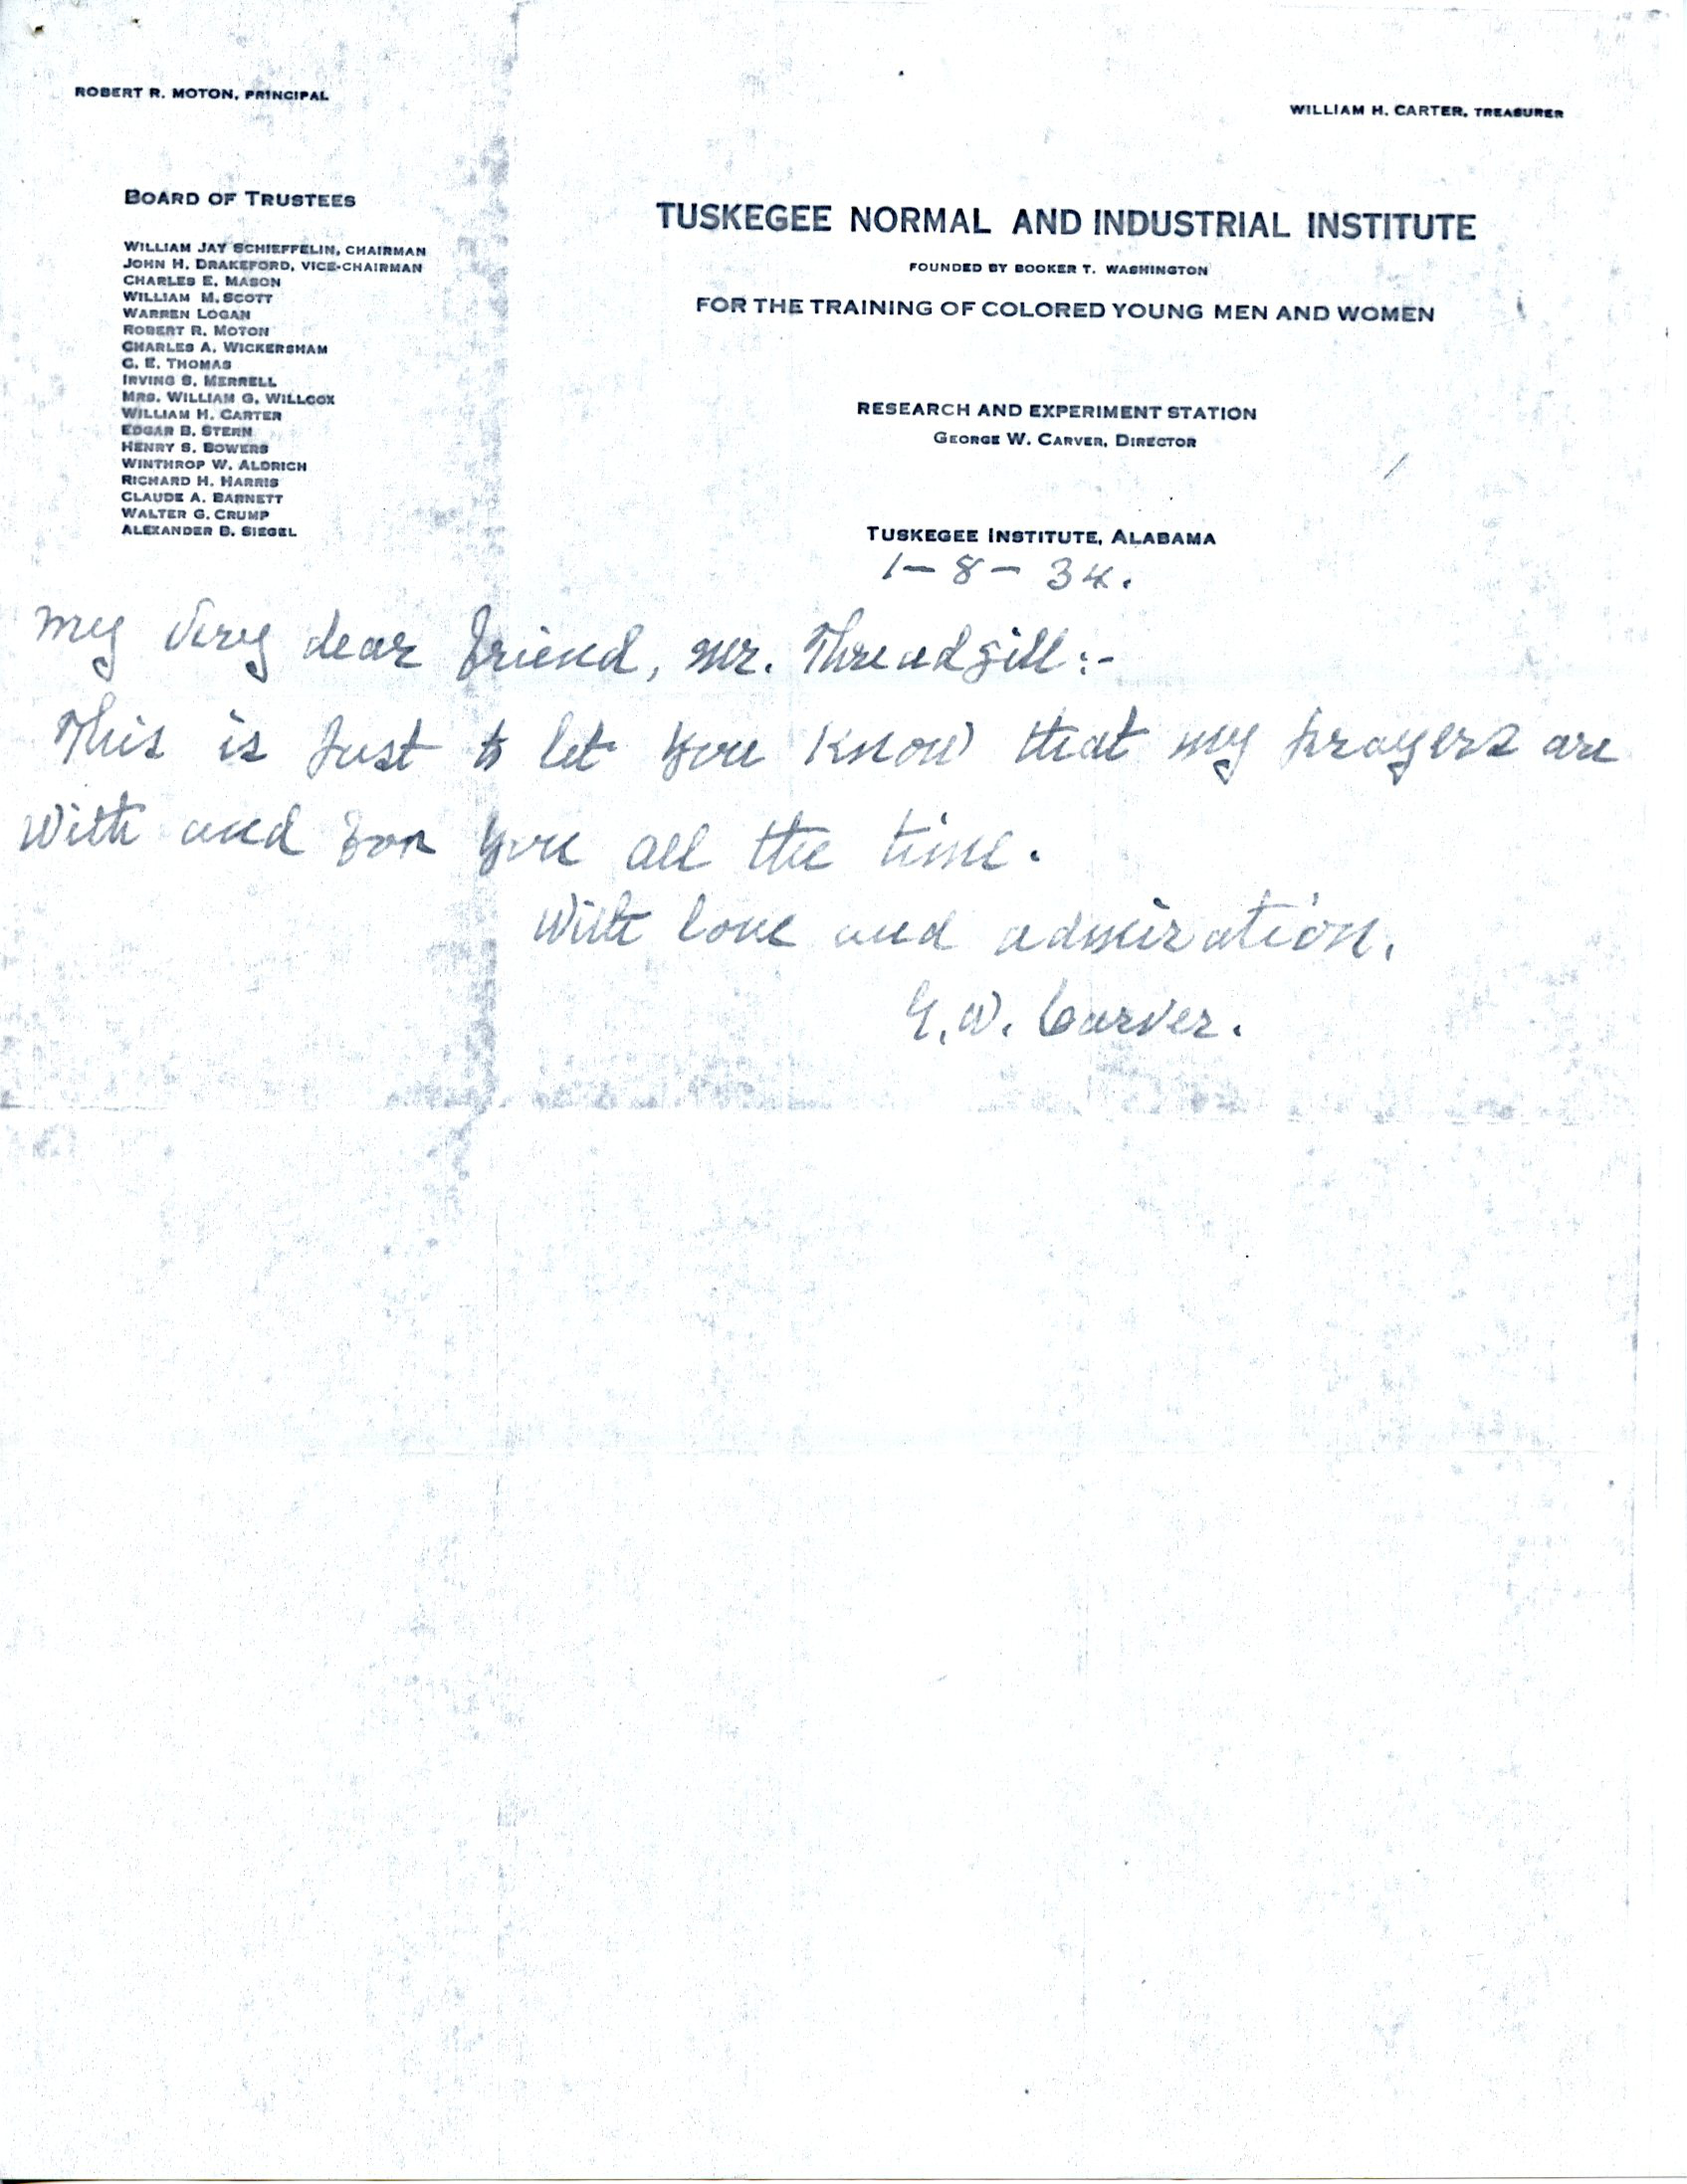 ROBERT R. MOTON, PRINCIPAL
WILLIAM H. CARTER, TREASURER
BOARD OF TRUSTEES
WILLIAM JAY SCHIEFFELIN, CHAIRMAN
JOHN H. DRAKEFORD, VICE-CHAIRMAN
CHARLES E. MASON
WILLIAM M. SCOTT
WARREN LOGAN
ROBERT R. MOTON
CHARLES A. WICKERSHAM
C. E. THOMAS
IRVING S. MERRELL
MRS. WILLIAM G. WILLCOX
WILLIAM H. CARTER
EDGAR B. STERN
HENRY S. BOWERS
WINTHROP W. ALDRICH
RICHARD H. HARRIS
CLAUDE A. BARNETT
WALTER G. CRUMP
ALEXANDER B. SIEGEL
TUSKEGEE NORMAL AND INDUSTRIAL INSTITUTE
FOUNDED BY BOOKER T. WASHINGTON
FOR THE TRAINING OF COLORED YOUNG MEN AND WOMEN
RESEARCH AND EXPERIMENT STATION
GEORGE W. CARVER, DIRECTOR
TUSKEGEE INSTITUTE, ALABAMA
1-8-34.
My very dear friend, Mr. Threadgill:-
This is just to let you know that my prayers are
with and for you all the time.
With love and admiration,
G. W. Carver.